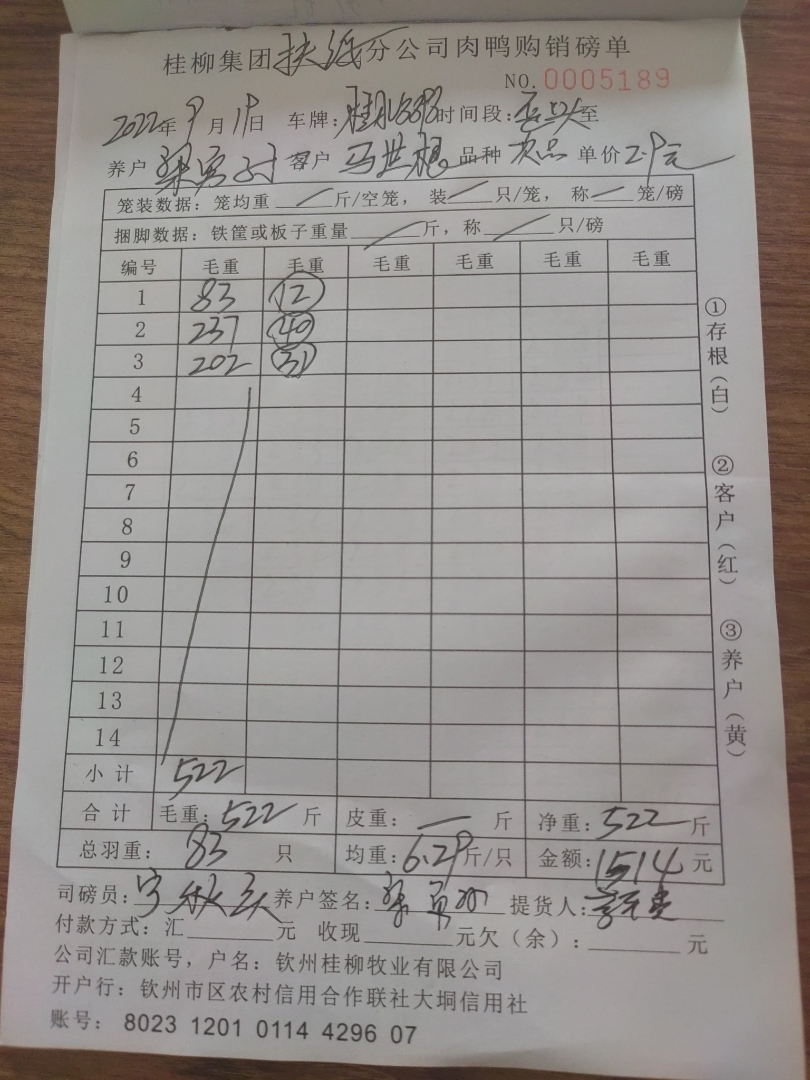 桂柳集团扶绥分公司肉鸭购销磅单
NO.0005189
2022年9月19日 车牌: 时间段: 至
养户 客户 马世根 品种 次品 单价2.9元
笼装数据：笼均重 — 斤/空笼，装 — 只/笼，称 — 笼/磅
捆脚数据：铁筐或板子重量 — 斤，称 — 只/磅
编号 毛重 毛重 毛重 毛重 毛重 毛重
1 83 (12)
2 237 (40)
3 202 (31)
4
5
6
7
8
9
10
11
12
13
14
小计 522
合计 毛重：522 斤 皮重：— 斤 净重：522 斤
总羽重：83 只 均重：6.29斤/只 金额：1514元
司磅员： 养户签名： 提货人：
付款方式：汇 元 收现 元欠（余）： 元
公司汇款账号，户名：钦州桂柳牧业有限公司
开户行：钦州市区农村信用合作联社大垌信用社
账号： 8023 1201 0114 4296 07
①存根（白） ②客户（红） ③养户（黄）